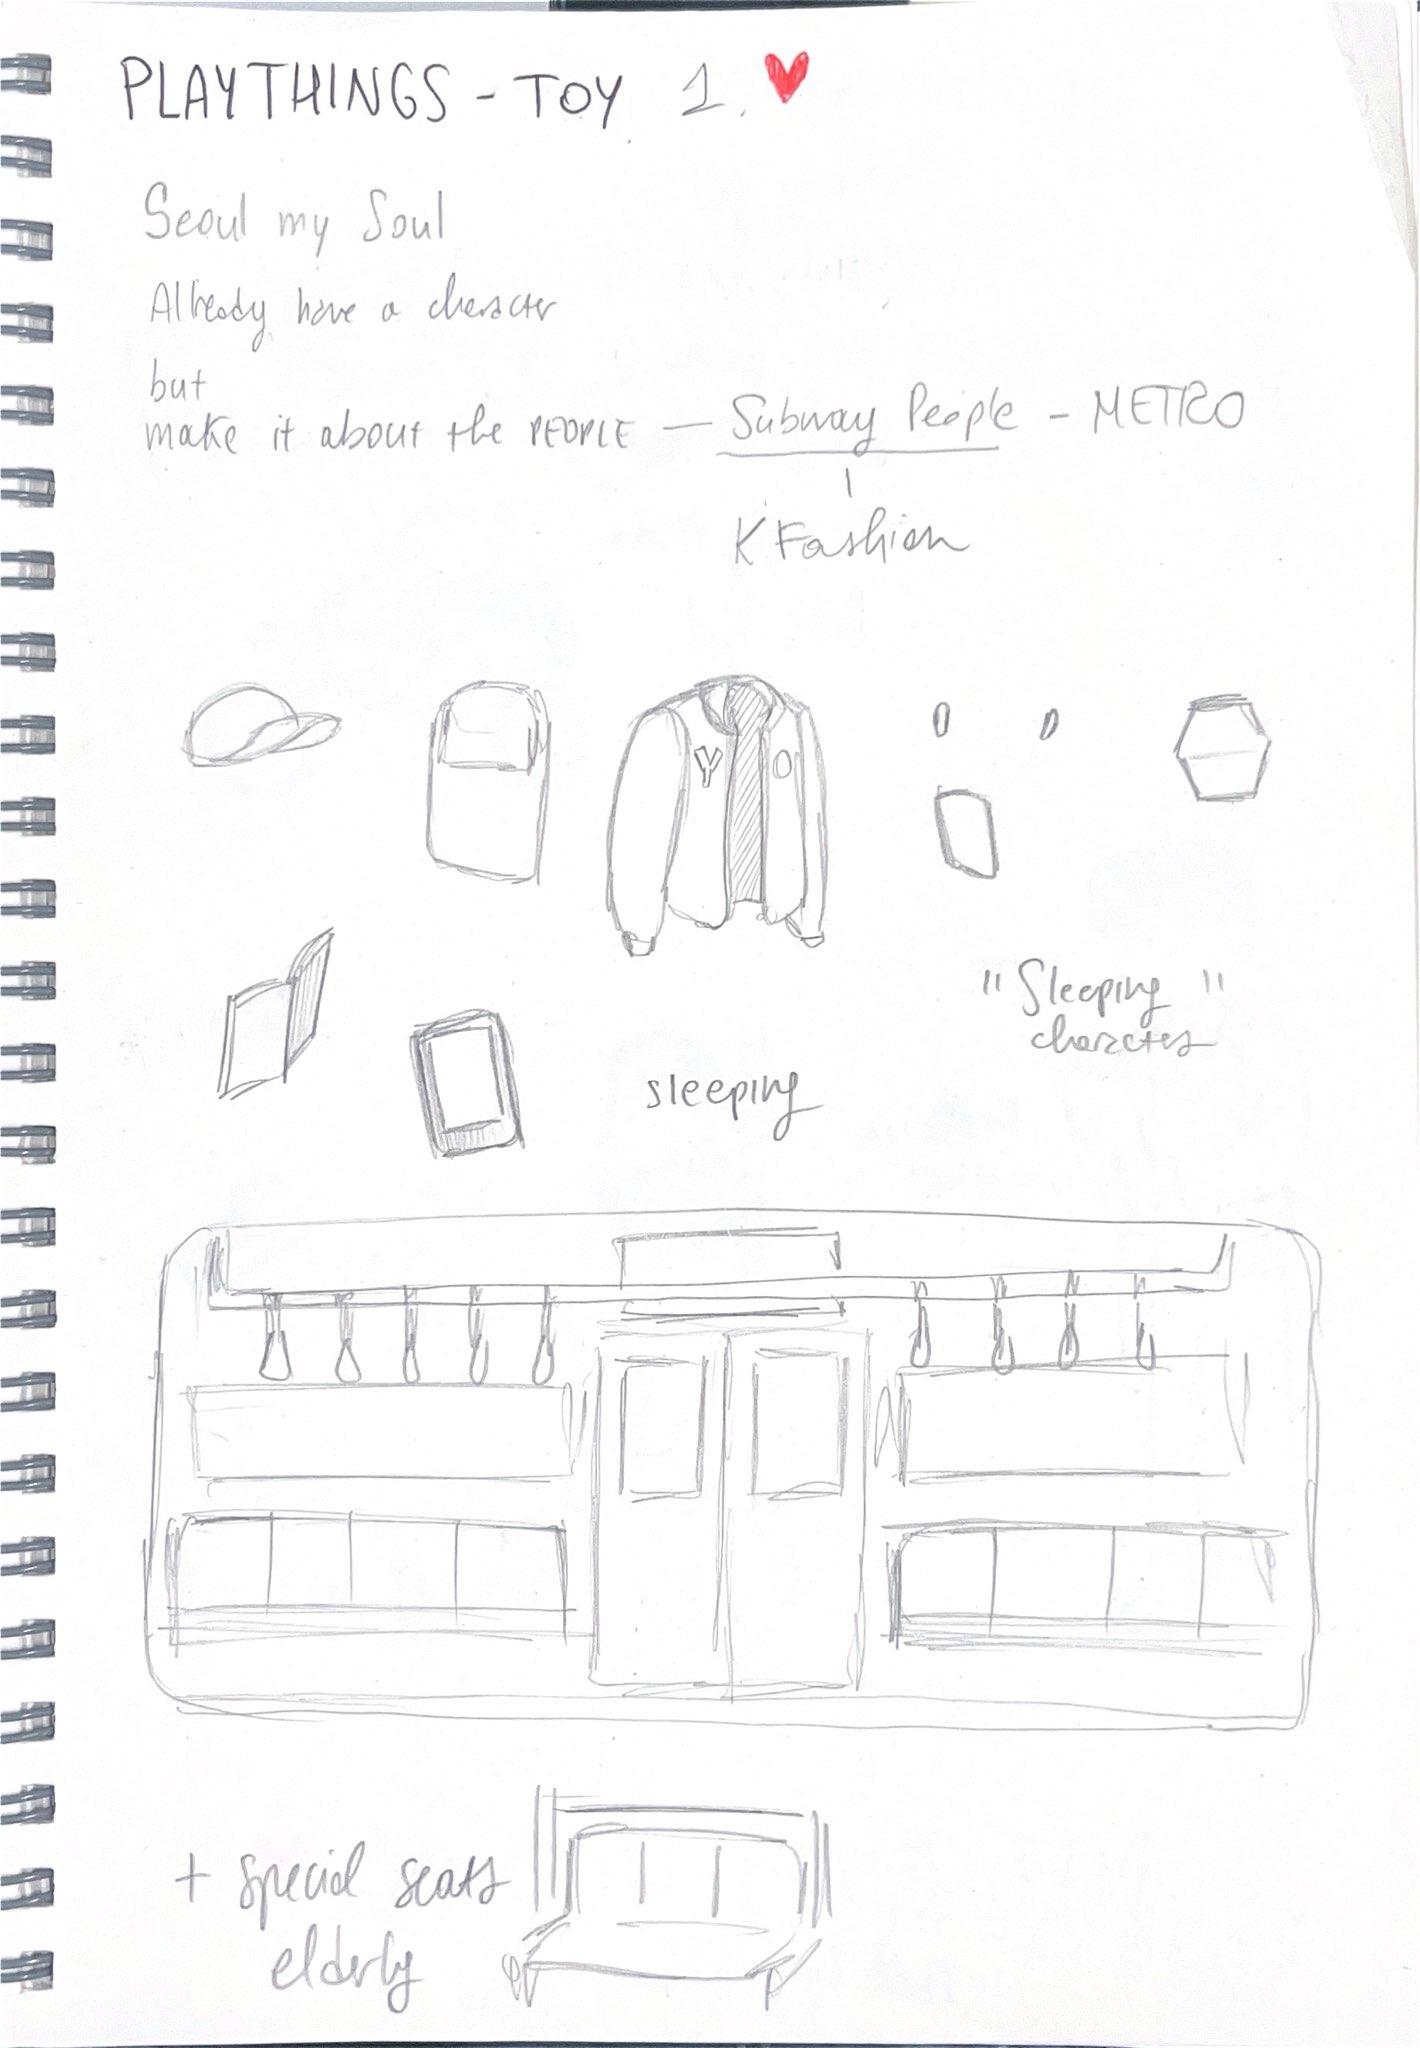 PLAYTHINGS - TOY 1.
Seoul my Soul
Already have a character
but
make it about the PEOPLE — Subway People - METRO
K Fashion
Y
"Sleeping"
character
sleeping
+ special seats
elderly